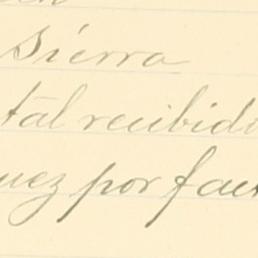 Sierra
tal recibido
uez por fact